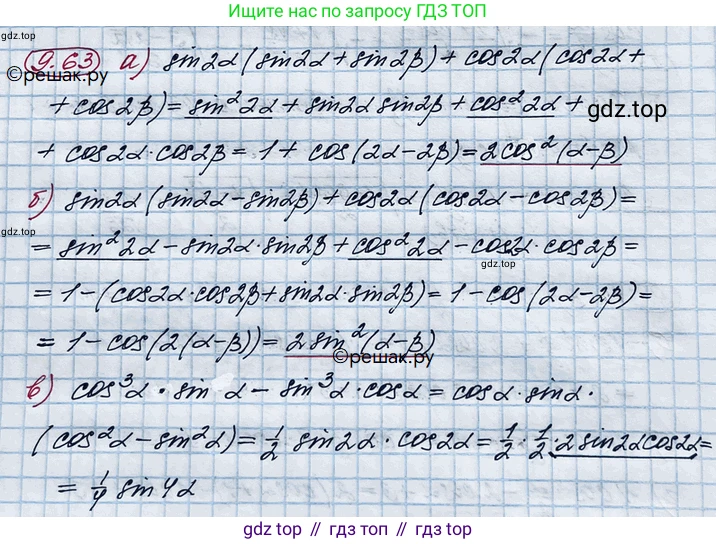 Ищите нас по запросу ГДЗ ТОП
9.63 а) sin2α(sin2α+sin2β) + cos2α(cos2α+
©решак.ру
+ cos2β) = sin²2α + sin2α sin2β + cos²2α +
gdz.top
+ cos2α·cos2β = 1 + cos(2α-2β) = 2cos²(α-β)
б) sin2α(sin2α-sin2β) + cos2α(cos2α-cos2β) =
gdz.top
= sin²2α - sin2α·sin2β + cos²2α - cos2α·cos2β =
gdz.top
= 1 - (cos2α·cos2β + sin2α·sin2β) = 1 - cos(2α-2β) =
= 1 - cos(2(α-β)) = 2sin²(α-β)
©решак.ру
в) cos³α · sin α - sin³α · cosα = cosα · sinα ·
(cos²α - sin²α) = 1/2 sin2α · cos2α = 1/2 · 1/2 · 2 sin2αcos2α =
= 1/4 sin4α
gdz.top // гдз топ // gdz.top